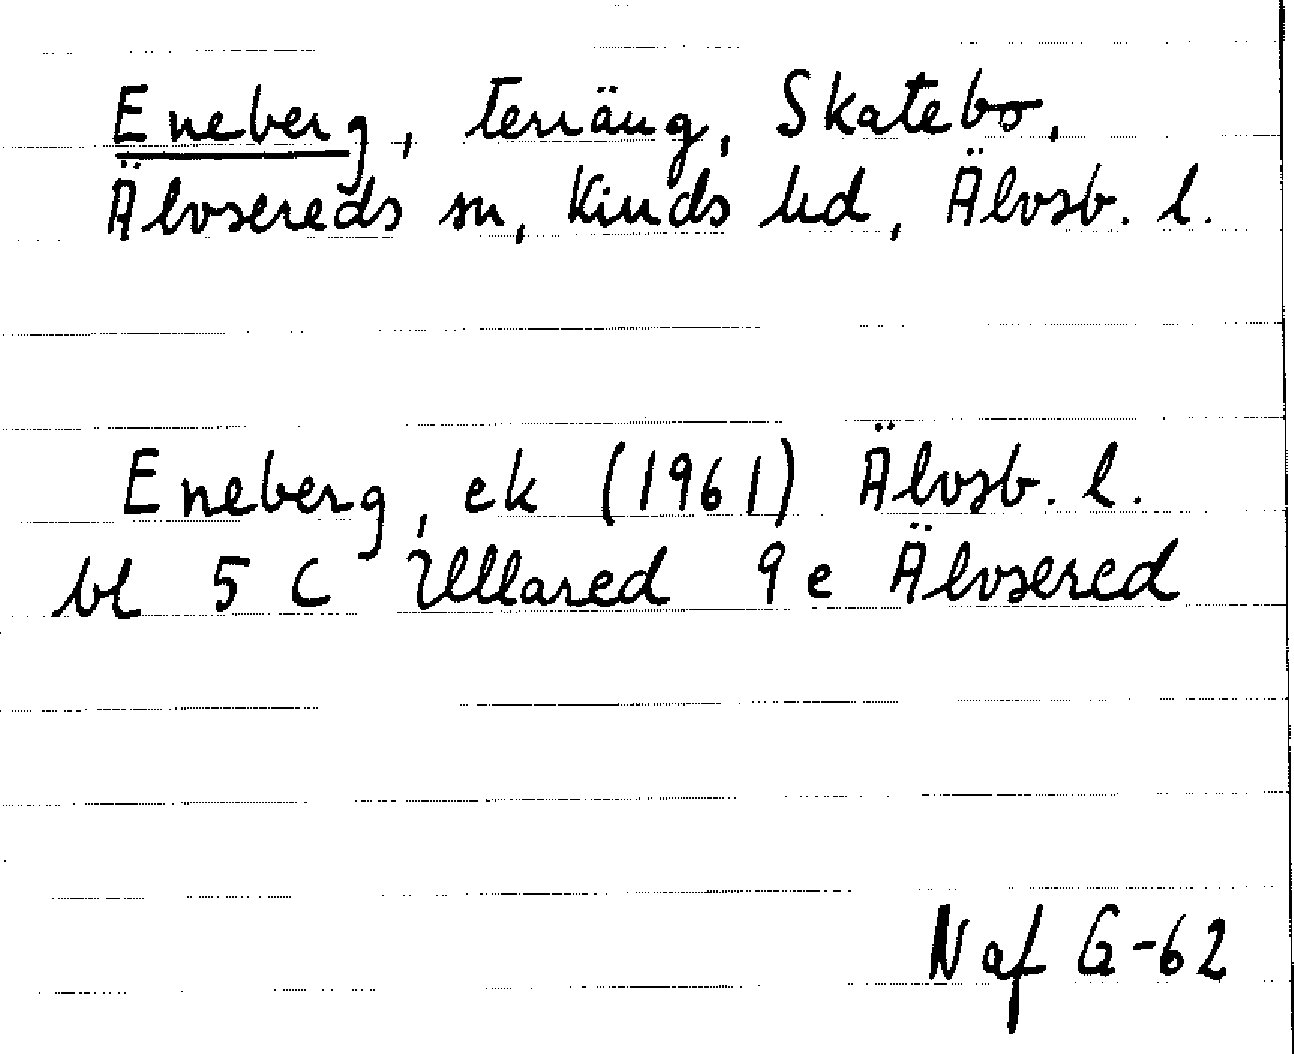 Eneberg, terräng, Skatebo,
Älvsereds sn, Kinds hd, Älvsb. l.
Eneberg, ek (1961) Älvsb. l.
bl 5 C Ullared 9 e Älvsered
N af G-62